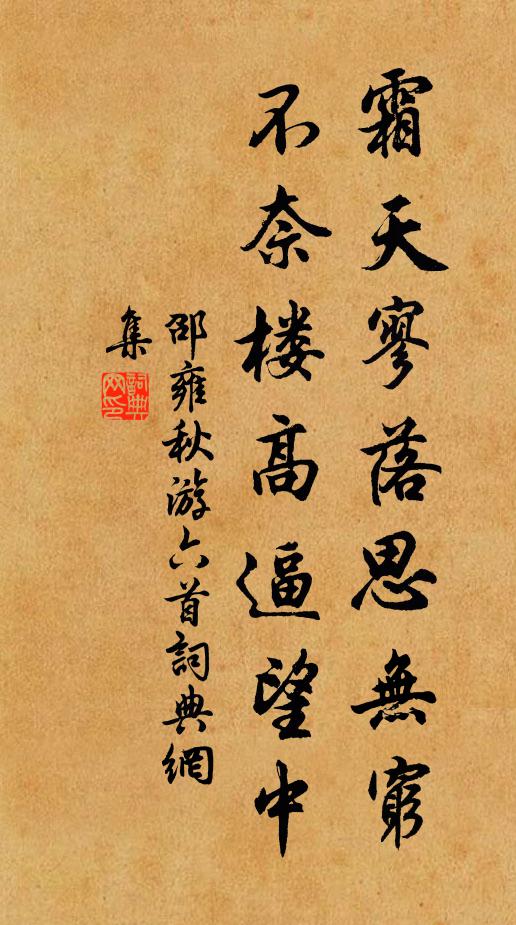 霜天寥落思無窮
不奈楼高逼望中
邵雍秋游六首詞典網
集
詞典
网印